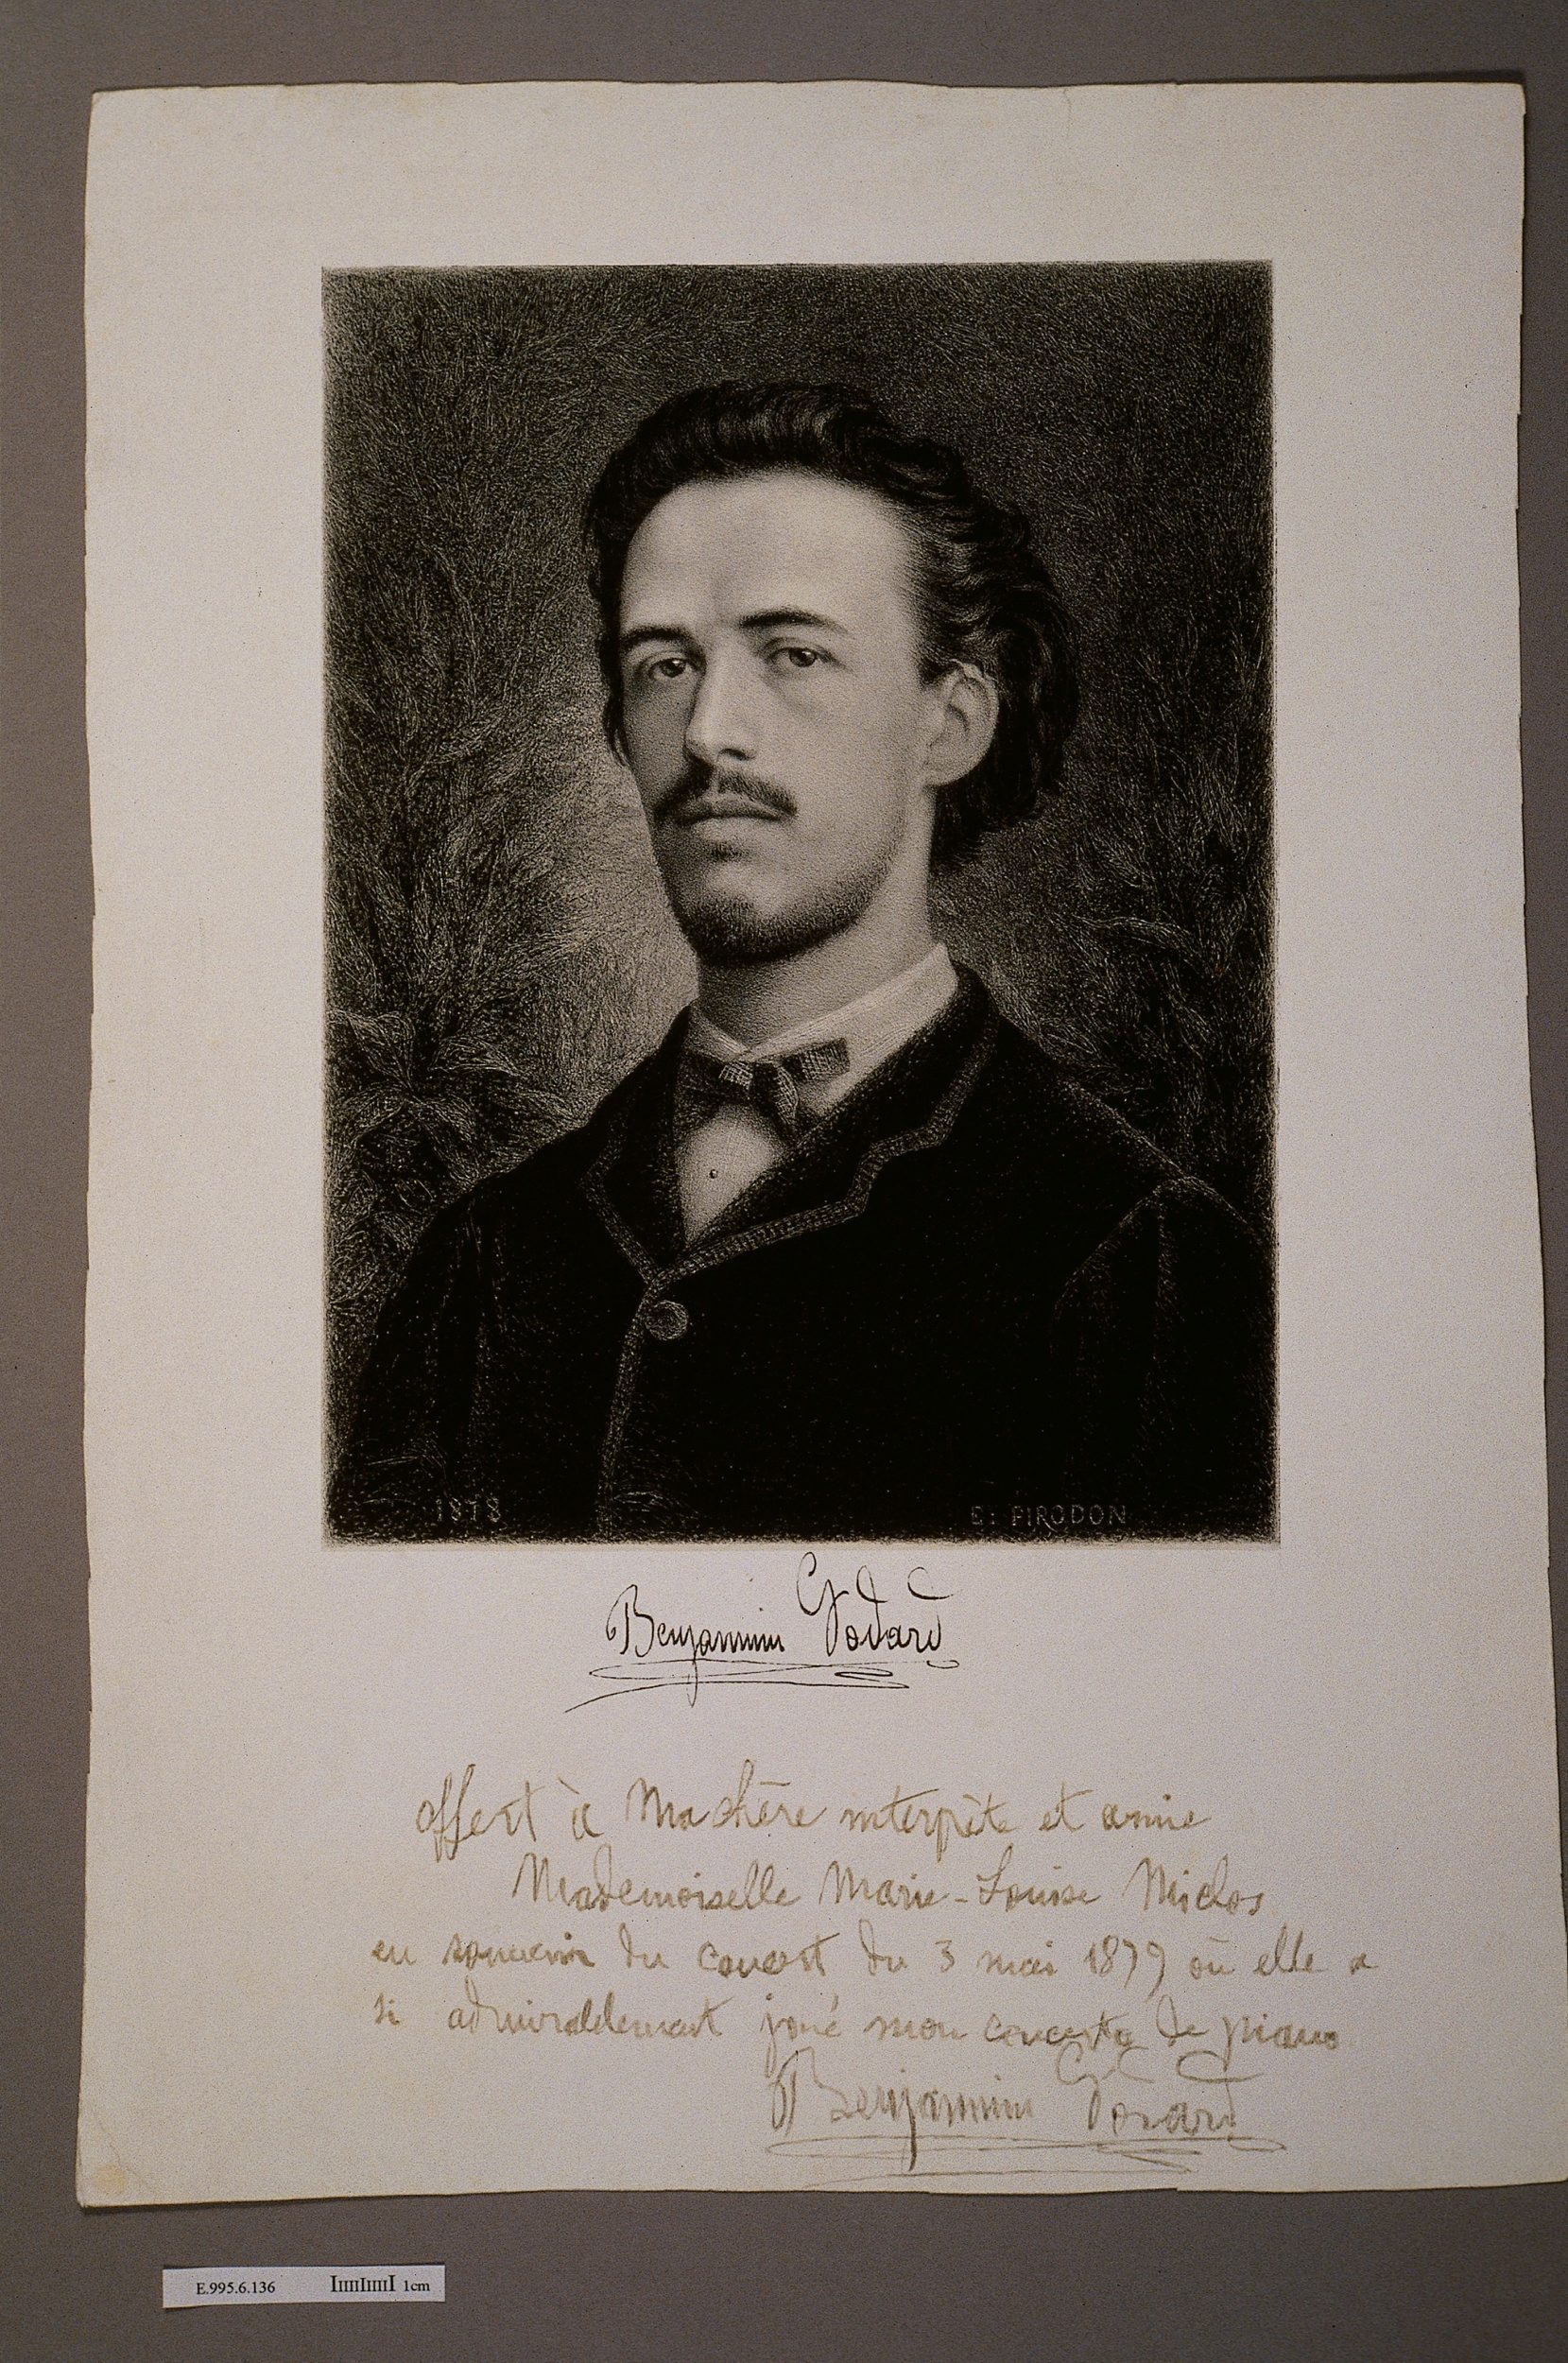 1878
E: PIRODON
Benjamin Godard
offert à Ma chère interprète et amie
Mademoiselle Marie-Louise Miclos
en souvenir du concert du 3 mai 1879 où elle a
si admirablement joué mon concerto de piano
Benjamin Godard
E.995.6.136 1cm